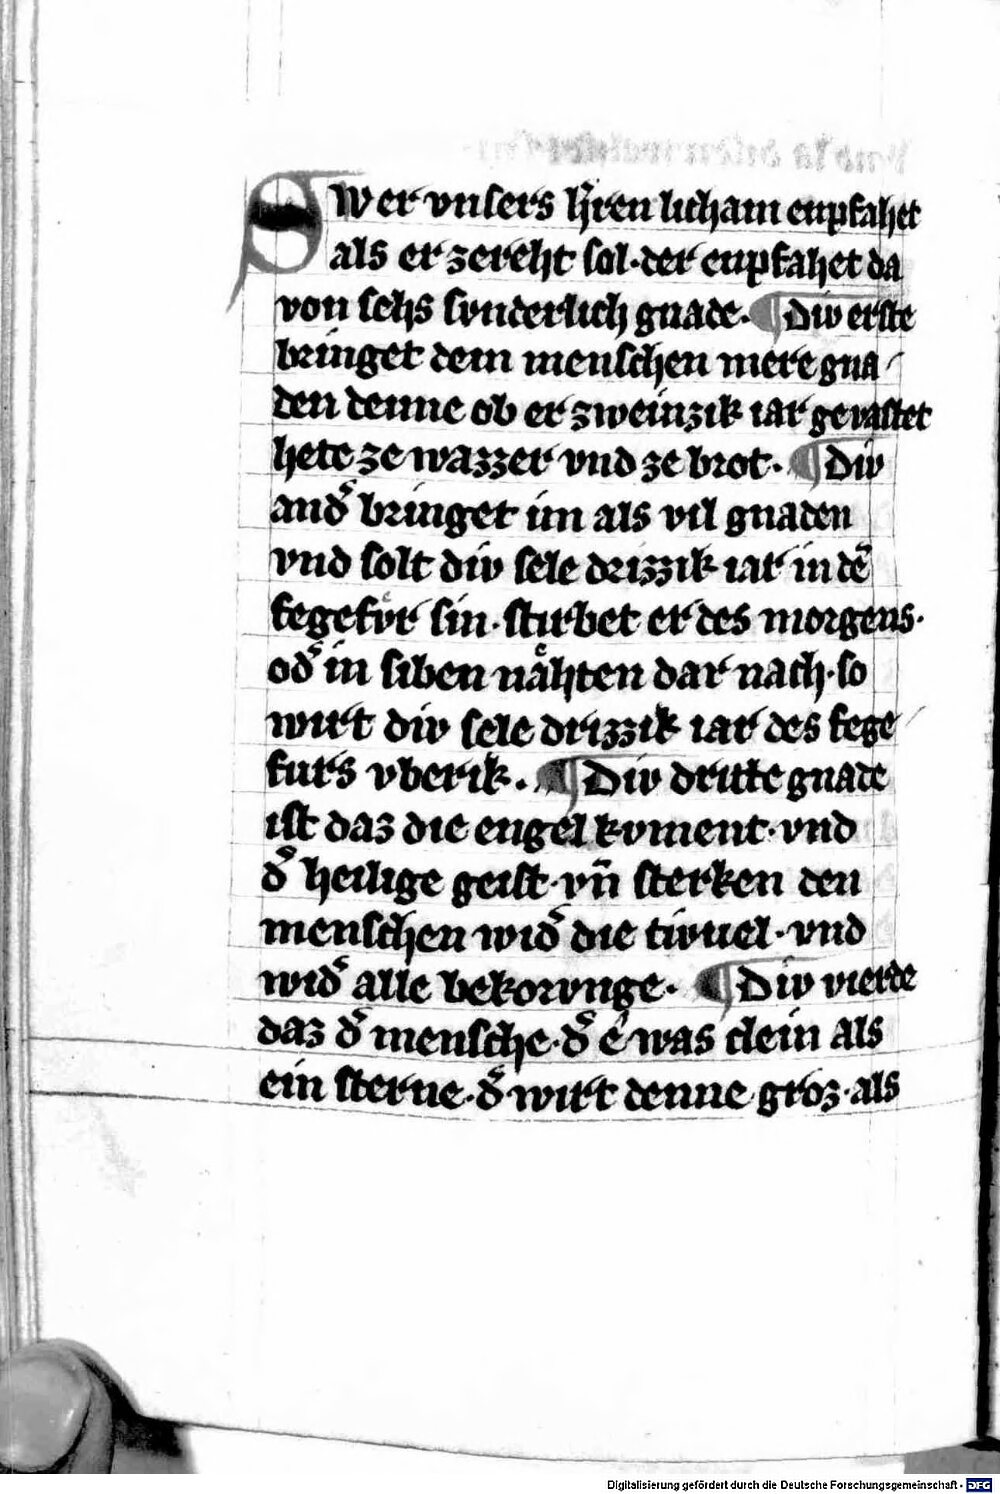 Swer vnsers h̄ren licham enpfahet
als er zereht sol·der enpfahet da
von sehs svnderlich gnade·¶Div erste
bringet dem menschen mere gna
den denne ob er zweinzik iar gevastet
hete ze wazzer vnd ze brot·¶Div
and᷒ bringet im als vil gnaden
vnd solt div sele drizzik iar in dē
fegefv̊r sin·stirbet er des morgens·
od᷒ in siben nåhten dar nach·so
wirt div sele drizzik iar des fege
furs vberik·¶Div dritte gnade
ist daz die engel kvment·vnd
d᷒ heilige geist·vn̄ sterken den
menschen wid᷒ die tivuel·vnd
wid᷒ alle bekorvnge·¶Div vierde
daz d᷒ mensche·d᷒ ê was clein als
ein sterne·d᷒ wirt denne groz·als
Digitalisierung gefördert durch die Deutsche Forschungsgemeinschaft - DFG